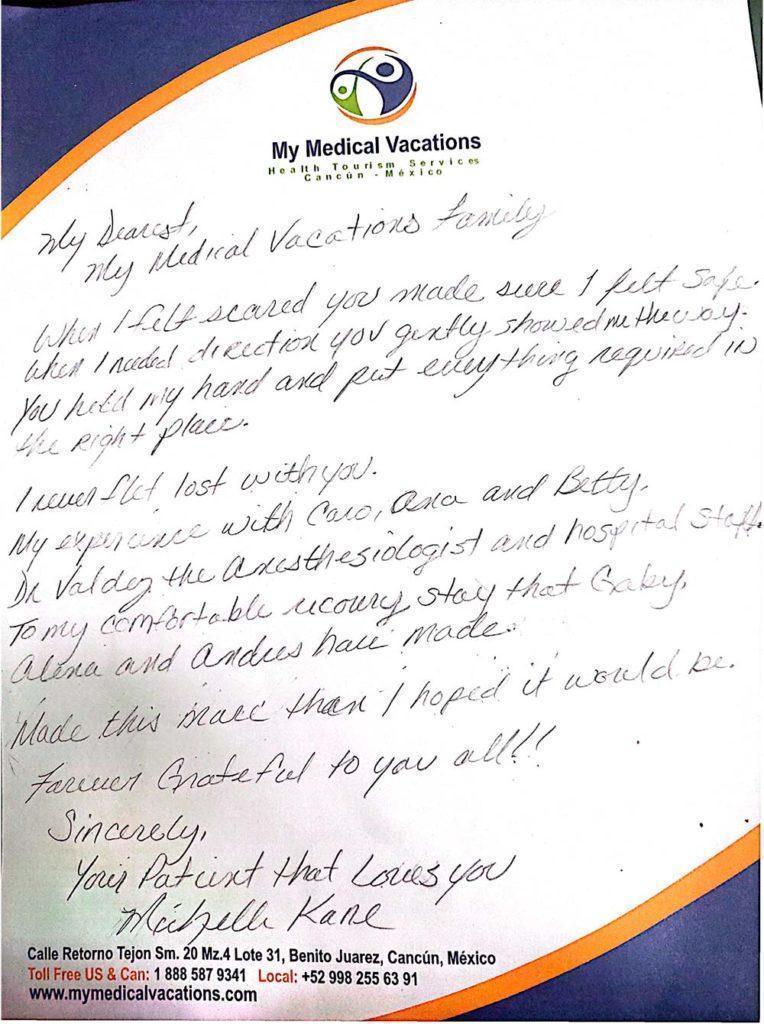 My Medical Vacations
Health Tourism Services
Cancún - México
My Dearest,
My Medical Vacations Family
When I felt scared you made sure I felt safe.
When I needed direction you gently showed me the way.
You held my hand and put everything required in
the right place.
I never flet lost with you.
My experience with Caro, Ana and Betty.
Dr Valdez the Anesthesiologist and hospital staff.
To my comfortable recovery stay that Gaby,
Alena and Andres have made.
Made this more than I hoped it would be.
Forever Grateful to you all!!
Sincerely,
Your Patient that Loves you
Michelle Kane
Calle Retorno Tejon Sm. 20 Mz.4 Lote 31, Benito Juarez, Cancún, México
Toll Free US & Can: 1 888 587 9341 Local: +52 998 255 63 91
www.mymedicalvacations.com